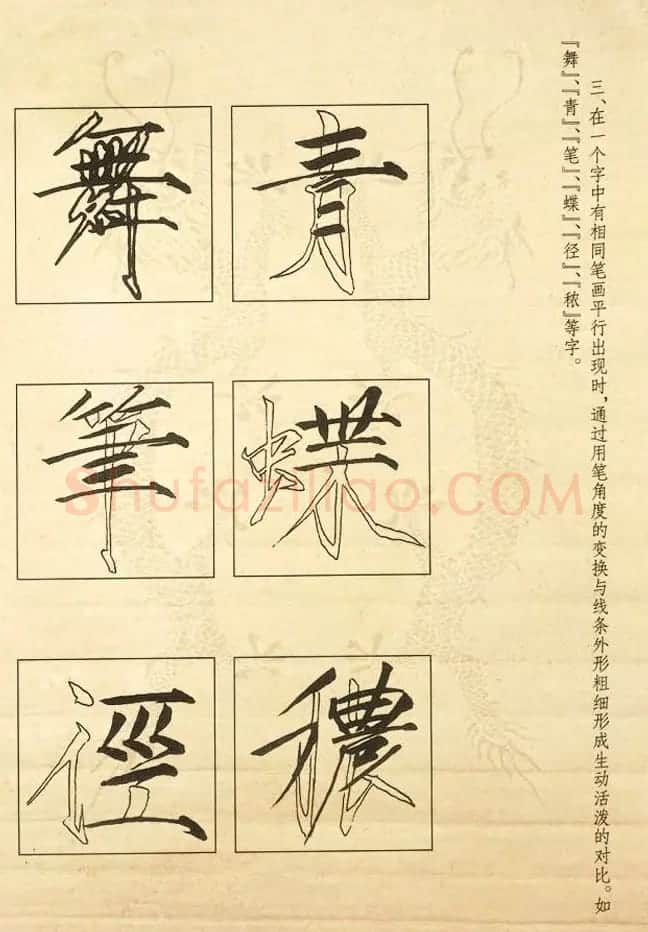 三、在一个字中有相同笔画平行出现时，通过用笔角度的变换与线条外形粗细形成生动活泼的对比。如
『舞』、『青』、『笔』、『蝶』、『径』、『秾』等字。
青 舞
蝶 筆
穠 徑
Shufaziliao.COM